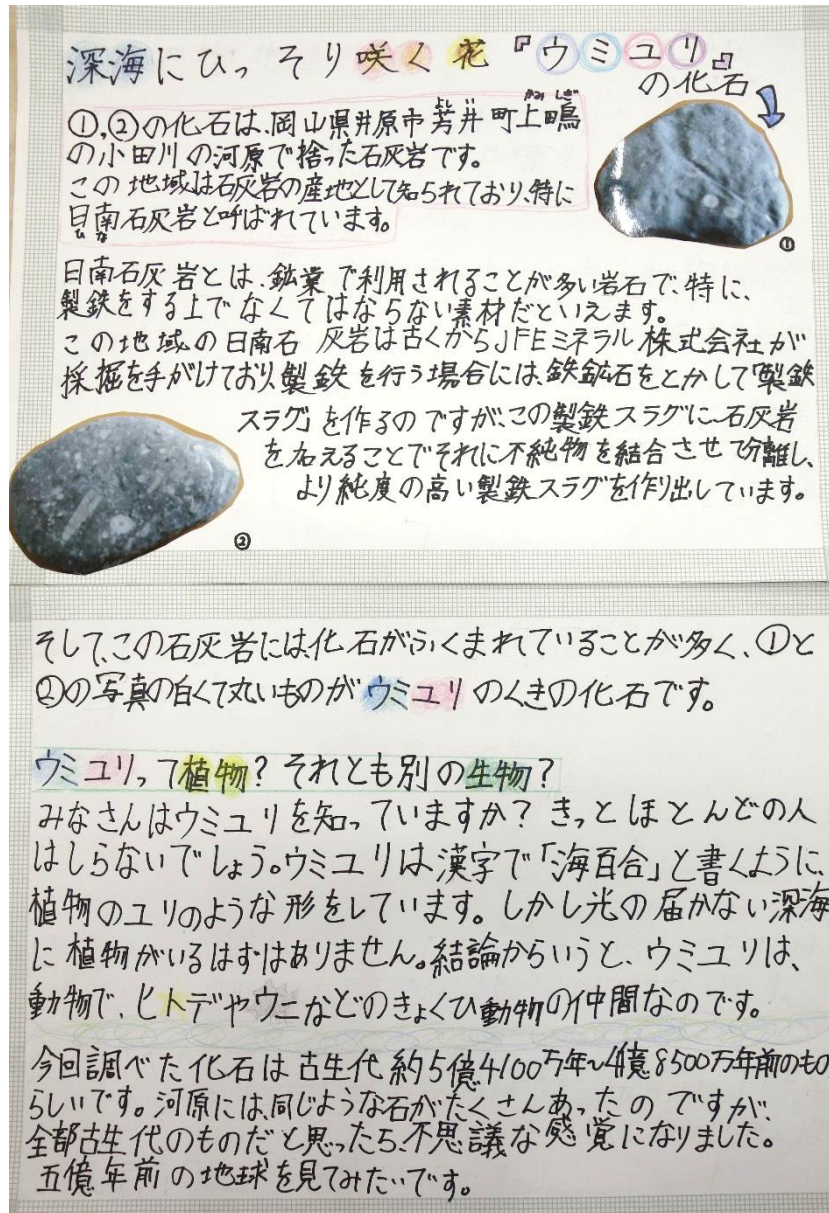 深海にひっそり咲く花『ウミユリ』
の化石
①,②の化石は、岡山県井原市芳井町上鴫
よしい
かみしぎ
の小田川の河原で捨った石灰岩です。
この地域は石灰岩の産地として知られており、特に
日南石灰岩と呼ばれています。
ひな
①
日南石灰岩とは、鉱業で利用されることが多い岩石で、特に、
製鉄をする上でなくてはならない素材だといえます。
この地域の日南石灰岩は古くからJFEミネラル株式会社が
採掘を手がけており、製鉄を行う場合には、鉄鉱石をとかして「製鉄
スラグ」を作るのですが、この製鉄スラグに、石灰岩
を加えることでそれに不純物を結合させて分離し、
より純度の高い製鉄スラグを作り出しています。
②
そして、この石灰岩には、化石がふくまれていることが多く、①と
②の写真の白くて丸いものがウミユリのくきの化石です。
ウミユリって植物？それとも別の生物？
みなさんはウミユリを知っていますか？きっとほとんどの人
はしらないでしょう。ウミユリは漢字で「海百合」と書くように、
植物のユリのような形をしています。しかし光の届かない深海
に植物がいるはずはありません。結論からいうと、ウミユリは、
動物で、ヒトデやウニなどのきょくひ動物の仲間なのです。
今回調べた化石は古生代約5億4100万年~4億8500万年前のもの
らしいです。河原には、同じような石がたくさんあったのですが、
全部古生代のものだと思ったら、不思議な感覚になりました。
五億年前の地球を見てみたいです。